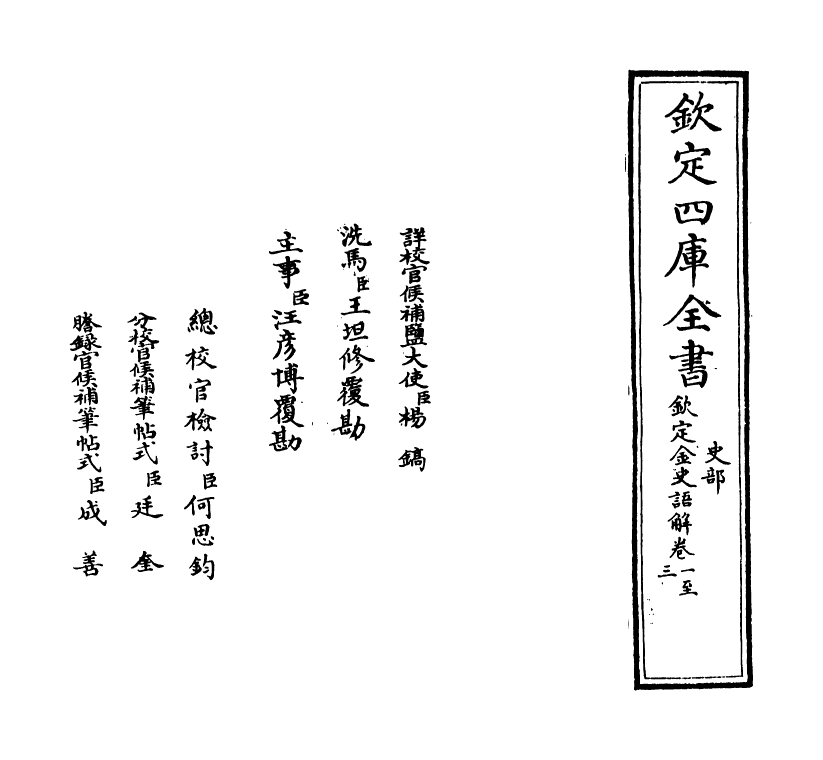 欽定四庫全書
史部
欽定金史語解卷一至三
詳校官候補鹽大使臣楊鎬
洗馬臣王坦修覆勘
主事臣汪彥博覆勘
總校官檢討臣何思鈞
分校官候補筆帖式臣廷奎
謄錄官候補筆帖式臣成善